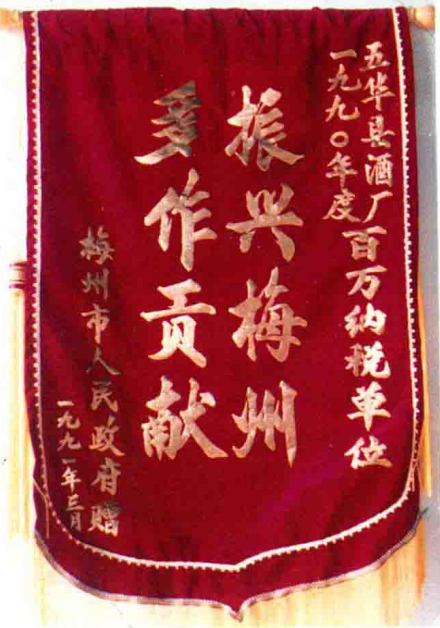 五华县酒厂
一九九〇年度百万纳税单位
振兴梅州
多作贡献
梅州市人民政府赠
一九九一年三月